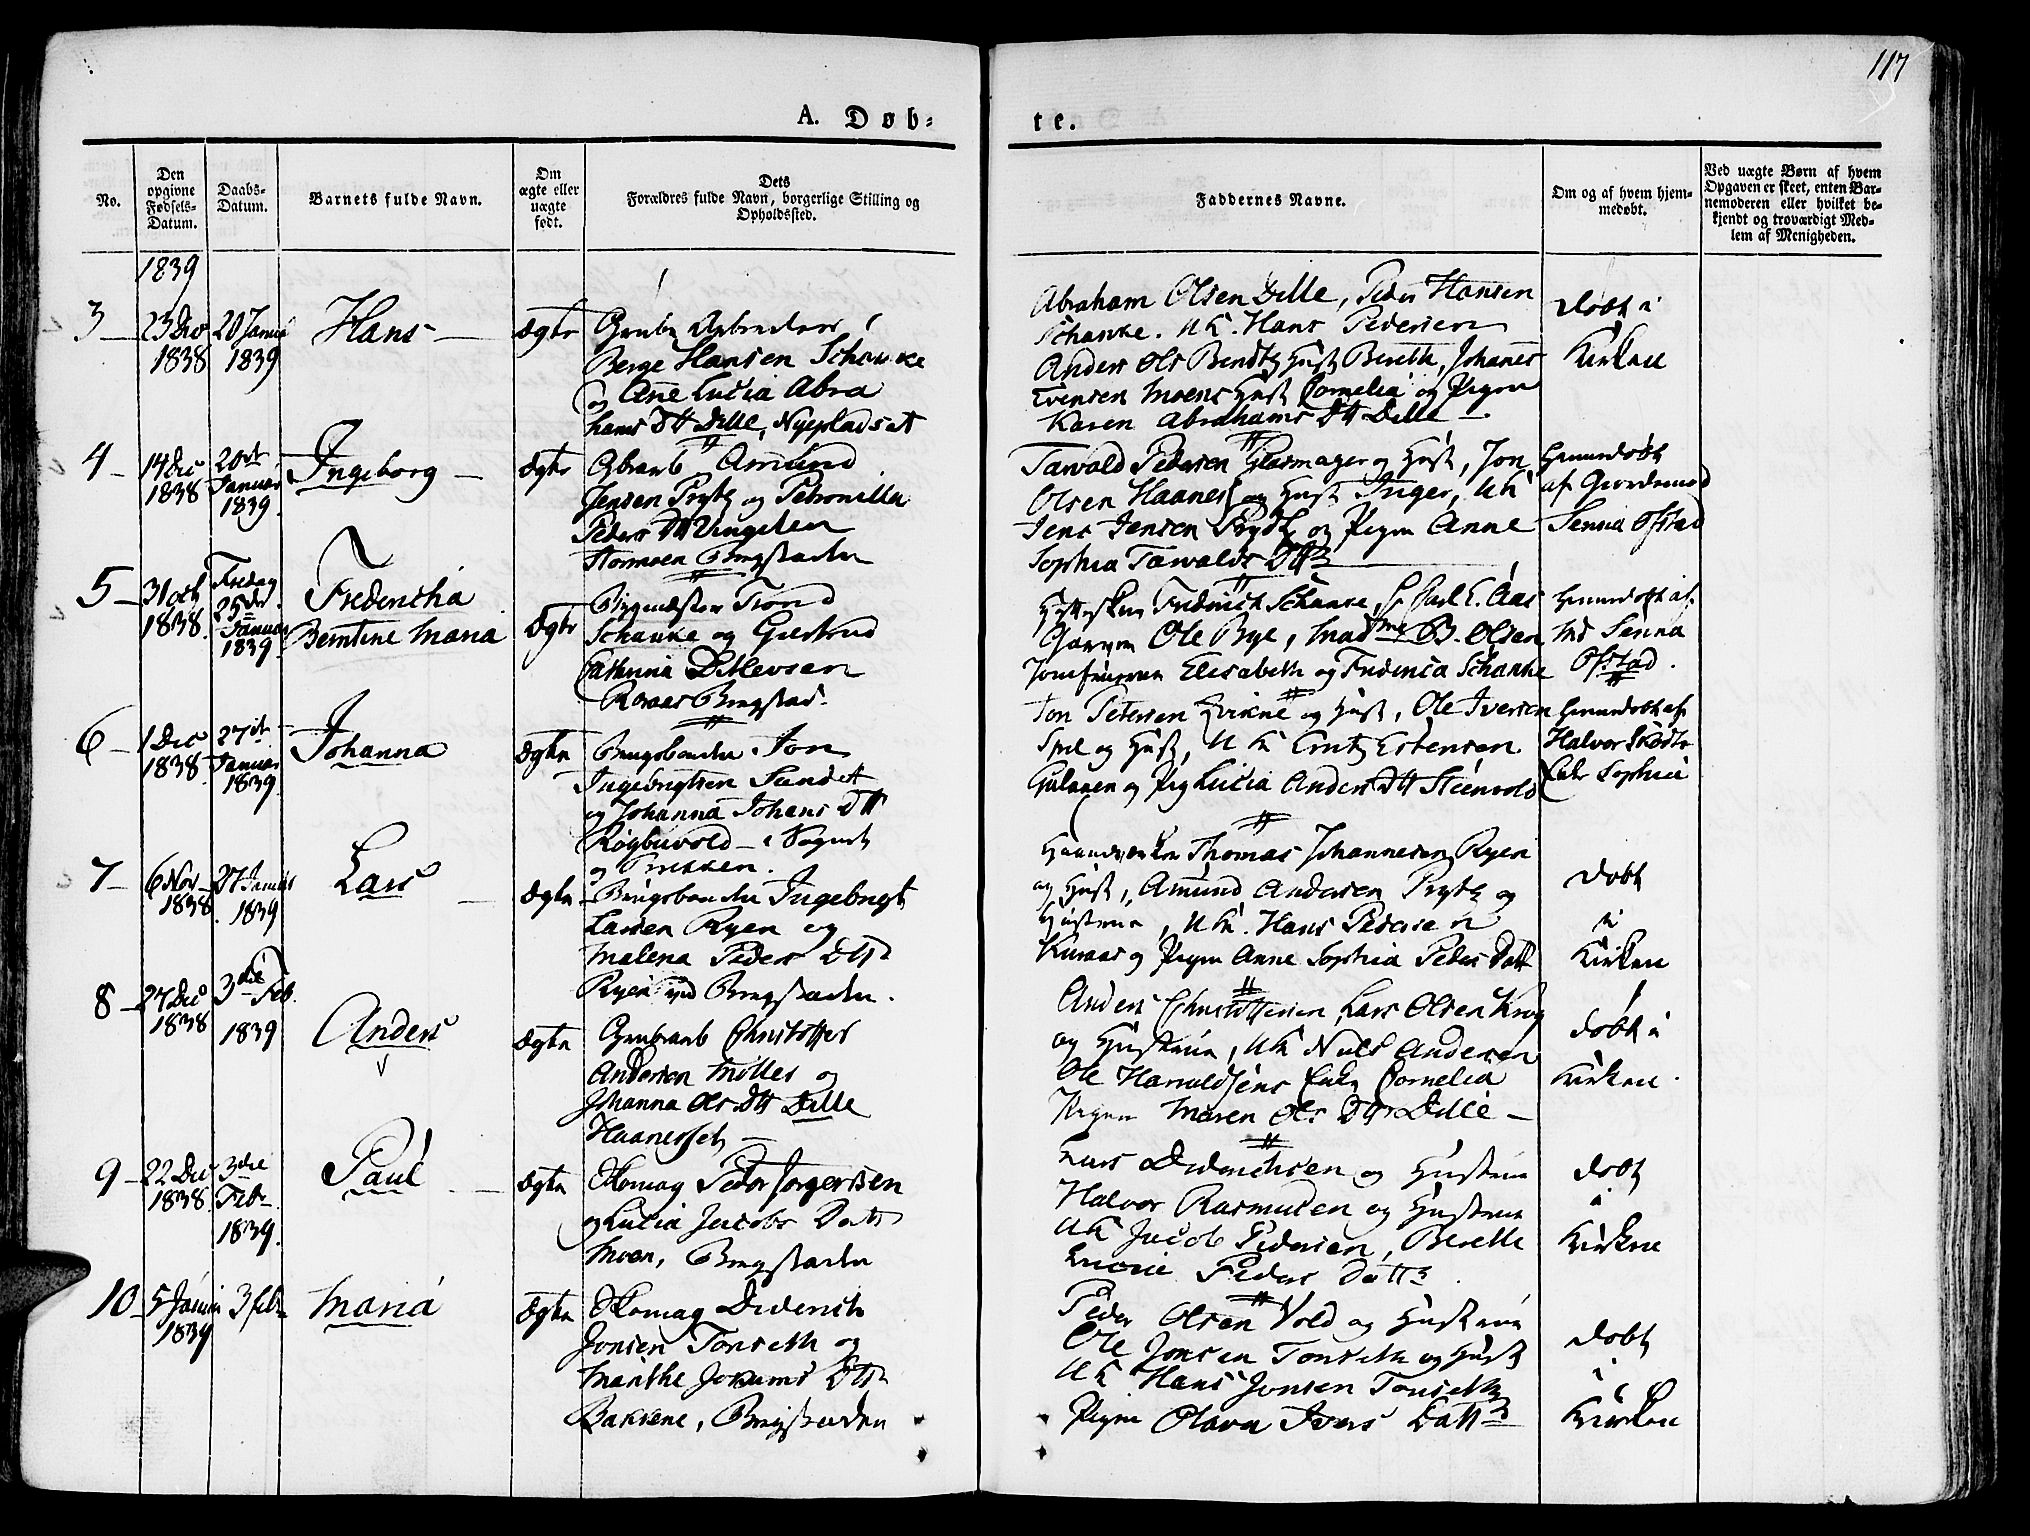 117
A. Døb-
te.
No.
Den opgivne Fødsels-Datum.
Daabs-Datum.
Barnets fulde Navn.
Om ægte eller uægte født.
Dets Forældres fulde Navn, borgerlige Stilling og Opholdssted.
Faddernes Navne.
Om og af hvem hjemmedøbt.
Ved uægte Børn af hvem Opgaven er skeet, enten Barnemoderen eller hvilket bekjendt og troværdigt Medlem af Menigheden.
1839
3
23 Dec 1838
20 Januar 1839
Hans
Ægte
Grube Arbeider
Berge Hansen Schancke
og Ane Lucia Abra
hams Dtt Dille, Nypladset
Abraham Olsen Dille, Peder Hansen
Schancke. UK. Hans Pedersen
Anders Ols Hust Bereth, Johanes
Evensen Moens Hust Cornelia og Pigen
Karen Abrahams Dtt Dille
Døbt i
Kirken
4
14 Dec 1838
20de Januar 1839
Ingeborg
Ægte
Grbarb Amund
Jensen Prytz og Petronella
Peders Dtt Vingelen
Stormoen Bergstaden
Tarvald Pedersen Glasmager og Hust, Jon
Olsen Haanes og Hust Inger, UK
Jens Jensen Prydtz og Pigen Anne
Sophia Tarvalds Dttr
Hjemmedøbt
af Gjordemod
Senna Ofstad
5
3 Oct 1838
Fredag 25de Januar 1839
Fredericha
Berntine Maria
Ægte
Trond
Schancke og Giertrud
Catharina Ditlevsen
Røraas Bergstad.
Frederich Schancke, Hr Poul E. Aas
Ole Bye, Mad B. Olsen
Jomfruerne Elisabeth og Frederica Schancke
Hjemmedøbt af
Md Senna
Ofstad.
6
1 Dec 1838
27de Januar 1839
Johanna
Ægte
Brugsbonden Jon
Ingebrigtsen Sundet
og Johanna Johans Dtt
Røgbuvold
og Brekken.
Jon Petersen Evikne og Hust, Ole Iversen
og Hust, UK Estensen
og Pig Lucia Anders Dtt Steenvold
Hjemmedøbt af
Halvor
Enke Sophia
7
6 Nov 1838
27 Januar 1839
Lars
Ægte
Brugsbonden Ingebrigt
Larsen Ryen og
Malena Peders Dtt
Ryen ved Bergstaden.
Haandværker Thomas Johannesen Ryen
og Hust, Amund Andersen Prytz og
Hustrue, UK. Hans Pedersen
Kuraas og Pigen Anne Sophia Peders Datt
Døbt
i
Kirken
8
27 Dec 1838
3die Feb. 1839
Anders
Ægte
Grubearb Christopher
Andersen Møller og
Johanna Ols Dtt Dille
Haanesset
Anders Christophersen, Lars Olsen Krog
og Hustrue, UK Niels Andersen
Ole Haraldsens Enke Cornelia
Pigen Maren Ols Dtt Dille
Døbt i
Kirken
9
22 Dec 1838
3die Febr 1839.
Paul
Ægte
Skomag Peder Jørgensen
og Lucia Jacobs Datt
Moen, Bergstaden
Lars Diderichsen og Hustrue
Halvor Rasmusen og Hustrue
UK Jacob Pedersen, Berette
Peders Dattr
Døbt
i
Kirken
10
5 Januar 1839
3 febr
Maria
Ægte
Skomag Diderich
Jonsen Tonseth og
Marithe Dtt
Bakkene, Bergstaden
Peder Olsen Vold og Hustrue
Ole Jonsen Tonseth og Hust
UK Hans Jonsen Tonseth
Pigen Olava Ivers Dattr
Døbt
i
Kirken